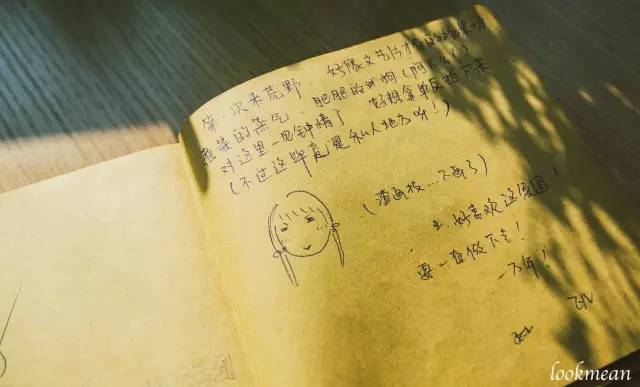 第一次来荒野. 好像文艺片才有的效果呀
氤氲的蒸气. 肥肥的 狗狗(阿
对这里一见钟情了 好想拿单反拍下来...
(不过这毕竟是私人地方呀!)
(渣画技...不画了)
好喜欢这氛围!
要一直做下去!
一万年!
lookmean